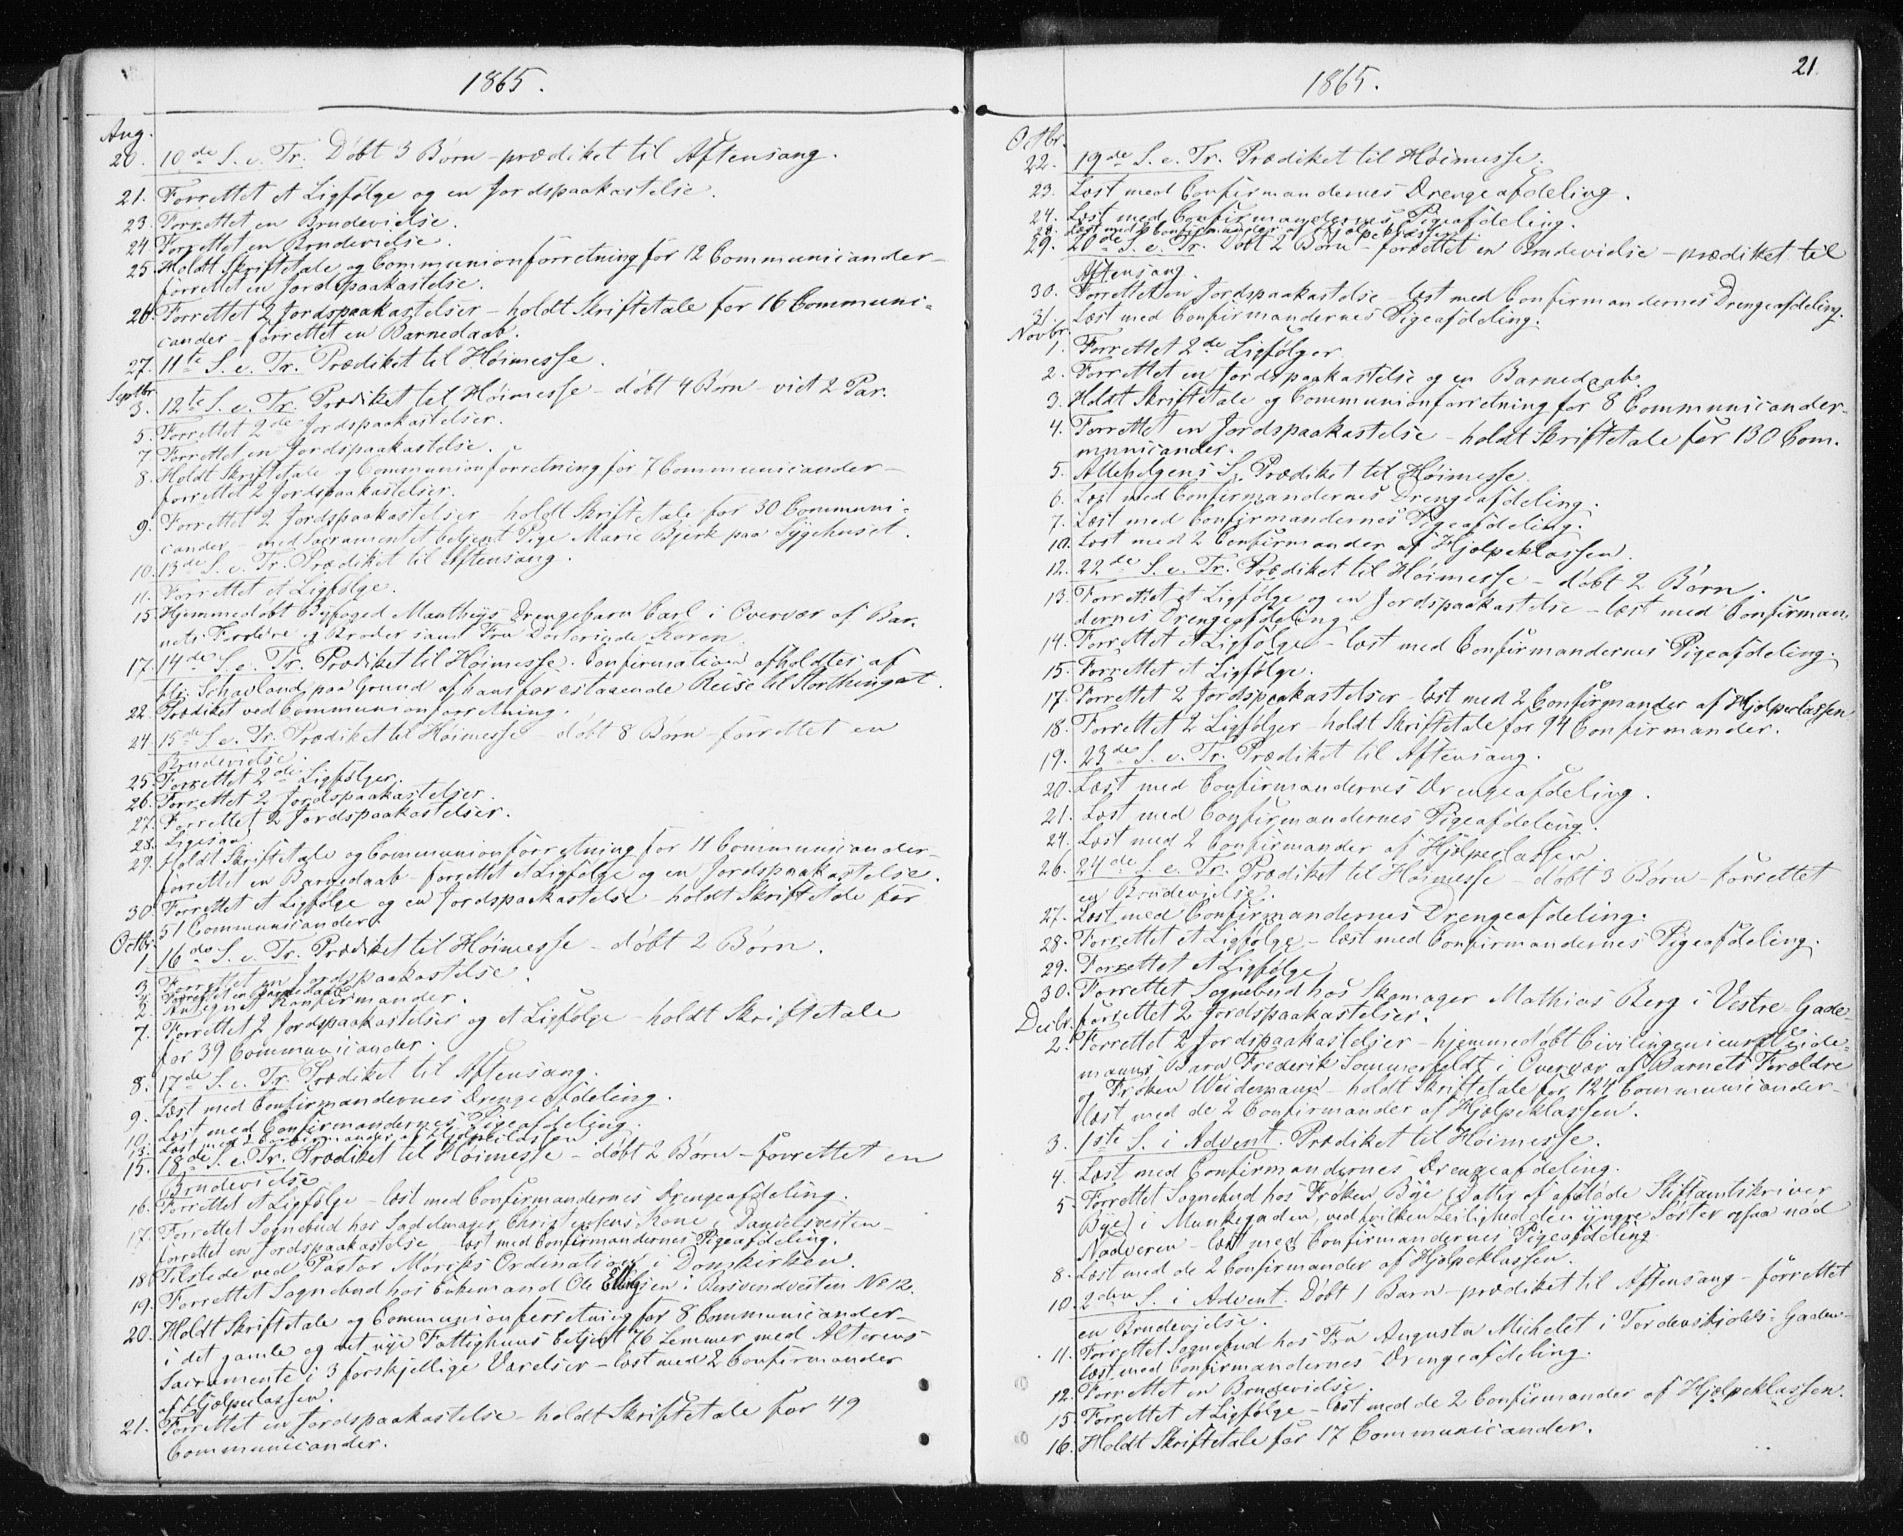 1865.
Aug.
20. 10de S. e. Tr. Døbt 3 Børn - prædiket til Aftensang.
21. Forrettet et Ligfølge og en Jordspaakastelse.
23. Forrettet en Brudevielse.
24. Forrettet en Brudevielse.
25. Holdt Skriftetale og Communionforretning for 12 Communicander -
forrettet en Jordspaakastelse.
26. Forrettet 2 Jordspaakastelser - holdt Skriftetale for 16 Communi-
cander - forrettet en Barnedaab.
27. 11te S. e. Tr. Prædiket til Høimesse.
Septbr.
3. 12te S. e. Tr. Prædiket til Høimesse - døbt 4 Børn - viet 2 Par.
5. Forrettet 2de Jordspaakastelser.
7. Forrettet en Jordspaakastelse.
8. Holdt Skriftetale og Communionforretning for 7 Communicander -
forrettet 2 Jordspaakastelser.
9. Forrettet 2 Jordspaakastelser - holdt Skriftetale for 30 Communi-
cander - med Sacramentet betjent Pige Marie Bjerk paa Sygehuset.
10. 13de S. e. Tr. Prædiket til Aftensang.
11. Forrettet et Ligfølge.
15. Hjemmedøbt Byfoged Mantheys Drengebarn Carl i Overvær af Bar-
nets Forældre og Broder samt Fru Doctorinde Koren.
17. 14de S. e. Tr. Prædiket til Høimesse. Confirmation afholdtes af
Hr. Schavland paa Grund af hans forestaaende Reise til Storthinget.
22. Prædiket ved Communionforretning.
24. 15de S. e. Tr. Prædiket til Høimesse - døbt 8 Børn - forrettet en
Brudevielse.
25. Forrettet 2de Ligfølger.
26. Forrettet 2 Jordspaakastelser.
27. Forrettet 2 Jordspaakastelser.
28. Ligesaa.
29. Holdt Skriftetale og Communionforretning for 11 Communicander -
forrettet en Barnedaab - forrettet et Ligfølge og en Jordspaakastelse.
30. Forrettet et Ligfølge og en Jordspaakastelse - holdt Skriftetale for
51 Communicander.
Octbr.
1. 16de S. e. Tr. Prædiket til Høimesse - døbt 2 Børn.
3. Forrettet en Jordspaakastelse.
4. Forrettet en Barnedaab.
2. Antegnet Konfirmander.
7. Forrettet 2 Jordspaakastelser og et Ligfølge - holdt Skriftetale
for 39 Communicander.
8. 17de S. e. Tr. Prædiket til Aftensang.
9. Læst med Confirmandernes Drengeafdeling.
10. Læst med Confirmandernes Pigeafdeling.
13. Læst med 2 Confirmander af Hjælpeclassen
15. 18de S. e. Tr. Prædiket til Høimesse - døbt 2 Børn - forrettet en
Brudevielse
16. Forrettet et Ligfølge - læst med Confirmandernes Drengeafdeling.
17. Forrettet Sognebud hos Sadelmager Christensens Kone i Danielsveiten -
forrettet en Jordspaakastelse - læst med Confirmandernes Pigeafdeling.
18. Tilstede ved Pastor Ordination i Domkirken.
19. Forrettet Sognebud hos Enkemand Ole Ellingsen i Ørsvendveiten No 12.
20. Holdt Skriftetale og Communionforretning for 8 Communicander -
i det gamle og det nye Fattighuus betjent 76 Lemmer med Alterens
Sacramente i 3 forskjellige Værelser - læst med 2 Confirmander
af Hjælpeclassen.
21. Forrettet en Jordspaakastelse - holdt Skriftetale for 49
Communicander.
1865.
21.
Octbr.
22. 19de S. e. Tr. Prædiket til Høimesse.
23. Læst med Confirmandernes Drengeafdeling.
24. Læst med Confirmandernes Pigeafdeling.
28. Læst med 2 Confirmander af Hjælpeclassen.
29. 20de S. e. Tr. Døbt 2 Børn - forrettet en Brudevielse - prædiket til
Aftensang.
30. Forrettet en Jordspaakastelse - læst med Confirmandernes Drengeafdeling.
31. Læst med Confirmandernes Pigeafdeling.
Novbr.
1. Forrettet 2de Ligfølger
2. Forrettet en Jordspaakastelse og en Barnedaab.
3. Holdt Skriftetale og Communionforretning for 8 Communicander.
4. Forrettet en Jordspaakastelse - holdt Skriftetale for 130 Com-
municander.
5. Allehelgens S. Prædiket til Høimesse.
6. Læst med Confirmandernes Drengeafdeling.
7. Læst med Confirmandernes Pigeafdeling.
10. Læst med 2 Confirmander af Hjælpeklassen.
12. 22de S. e. Tr. Prædiket til Høimesse - døbt 2 Børn.
13. Forrettet et Ligfølge og en Jordspaakastelse - læst med Confirman-
dernes Drengeafdeling.
14. Forrettet et Ligfølge - læst med Confirmandernes Pigeafdeling.
15. Forrettet et Ligfølge.
17. Forrettet 2 Jordspaakastelser - læst med 2 Confirmander af Hjælpeclassen
18. Forrettet 2 Ligfølger - holdt Skriftetale for 94 Confirmander.
19. 23de S. e. Tr. Prædiket til Aftensang.
20. Læst med Confirmandernes Drengeafdeling.
21. Læst med Confirmandernes Pigeafdeling.
24. Læst med 2 Confirmander af Hjælpeclassen
26. 24de S. e. Tr. Prædiket til Høimesse - døbt 3 Børn - forrettet
en Brudevielse.
27. Læst med Confirmandernes Drengeafdeling.
28. Forrettet et Ligfølge - læst med Confirmandernes Pigeafdeling.
29. Forrettet et Ligfølge
30. Forrettet Sognebud hos Skomager Mathias Berg i Vestre-Gade -
forrettet 2 Jordspaakastelser.
Decbr.
2. Forrettet 2 Jordspaakastelser - hjemmedøbt Civilingenieur Weide-
manns Barn Frederik Sommerfeldt i Overvær af Barnets Forældre
og Frøken Weidemann - holdt Skriftetale for 124 Communicander -
læst med de 2 Confirmander af Hjælpeklassen.
3. 1ste S. i Advent. Prædiket til Høimesse.
4. Læst med Confirmandernes Drengeafdeling.
5. Forrettet Sognebud hos Frøken Bye (Datter af afdøde Stiftamtskriver
Bye) i Munkegaden, ved hvilken Leilighed den yngre Søster ogsaa nød
Nadveren - læst med Confirmandernes Pigeafdeling
8. Læst med de 2 Confirmander af Hjælpeklassen.
10. 2den S. i Advent. Døbt 1 Barn - prædiket til Aftensang - forrettet
en Brudevielse.
11. Forrettet Sognebud hos Fru Augusta Michelet i Tordenskjolds-Gaden -
læst med Confirmandernes Drengeafdeling.
12. Forrettet en Brudevielse.
15. Forrettet et Ligfølge - læst med de 2 Confirmander af Hjælpeklassen.
16. Holdt Skriftetale for 17 Communicander.